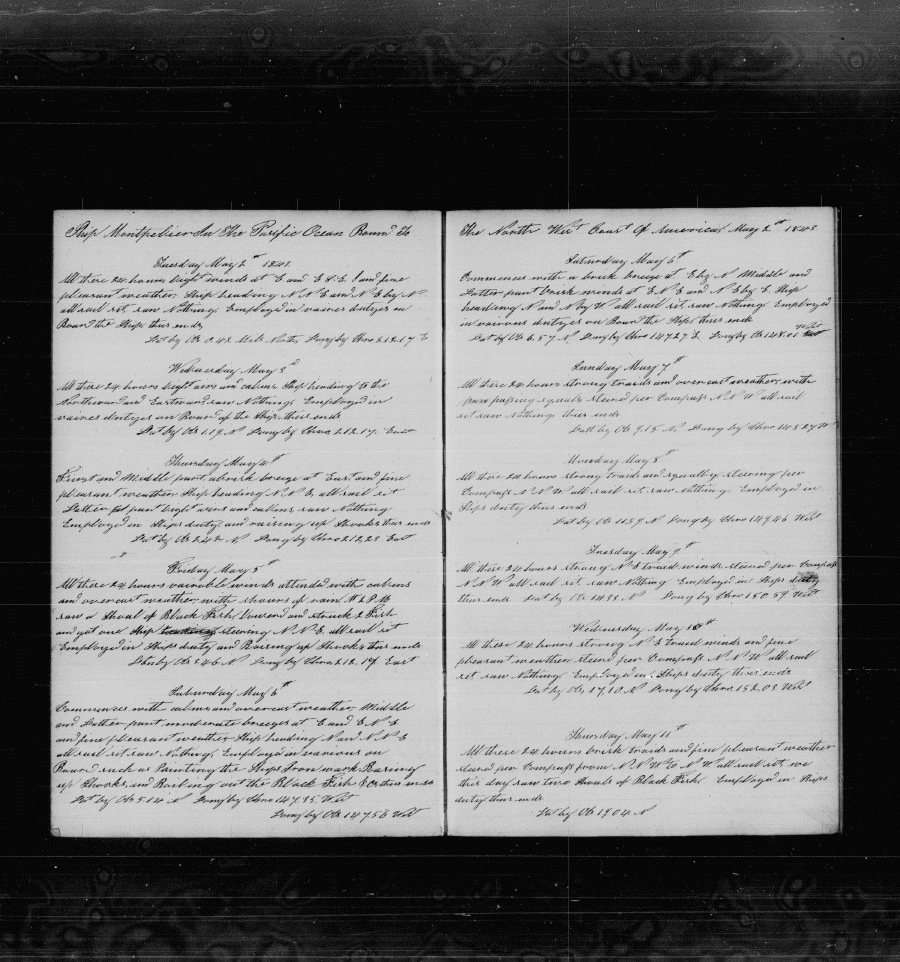 Ship Montpelier In The Pacific Ocean Bound To
Tuesday May 2nd 1843
All these 24 hours light winds at E and E S E and fine
pleasant weather Ship heading N N E and N E by N
all sail set saw Nothing Employed in vaires dutyes on
Board the Ship thus ends
Lat by Ob 0.42 Mile North Long by Chro 212.17 E
Wednesday May 3d
All these 24 hours light airs and calms Ship heading to the
Northward and Eastward saw Nothing Employed in
vaires dutyes on Board of the Ship thus ends
Lat by Ob 1.19 N Long by Chro 212.17 East
Thursday May 4th
First and Middle part a brisk breeze at East and fine
pleasant weather Ship heading N N E all sail set
Latter part light airs and calms saw Nothing
Employed in Ships duty and raising up Shooks thus ends
Lat by Ob 2.42 N Long by Chro 212.23 East
Friday May 5th
All these 24 hours vairable winds attended with calms
and overcast weather with showers of rain At P M
saw a Shoal of Black Fish Lowered and struck 2 Fish
and got one Ship steering N N E all sail set
Employed in Ships duty and Raising up Shooks thus ends
Lat by Ob 3.46 N Long by Chro 212.17 East
Saturday May 6th
Commences with calms and overcast weather Middle
and Latter part moderate breezes at E and E N E
and fine pleasant weather Ship heading N and N N E
all sail set saw Nothing Employed in various on
Board such as Painting the Ships Iron work Raising
up Shooks and Boiling out the Black Fish &c thus ends
Lat by Ob 5.14 N Long by Chro 147.35 West
Long by Ob 147.56 West
The North West Coast Of America May 2nd 1843
Saturday May 6th
Commences with a brisk breeze at E by N Middle and
Latter part brisk winds at E N E and N E by E Ship
heading N and N by W all sail set saw Nothing Employed
in various dutyes on Board the Ship thus ends
Lat by Ob 6.57 N Long by Chro 147.27 Long by Ob 148.01 West
Sunday May 7th
All these 24 hours strong traids and overcast weather with
passing squals steered per Compass N N W all sail
set saw Nothing thus ends
Lat by Ob 9.15 N Long by Chro 148.27 W
Monday May 8th
All these 24 hours strong traids and squally steering per
Compass N N W all sail set saw Nothing Employed in
Ships duty thus ends
Lat by Ob 11.59 N Long by Chro 149.46 West
Tuesday May 9th
All these 24 hours strong N E traid winds steered per Compass
N N W all sail set saw Nothing Employed in Ships duty
thus ends Lat by Ob 14.33 N Long by Chro 150.59 West
Wednesday May 10th
All these 24 hours strong N E traid winds and fine
pleasant weather steered per Compass N N W all sail
set saw Nothing Employed in Ships duty thus ends
Lat by Ob 17.10 N Long by Chro 152.03 West
Thursday May 11th
All these 24 hours brisk traids and fine pleasant weather
steered per Compass from N N W to N W all sail set we
this day saw two Shoals of Black Fish Employed in Ships
duty thus ends
Lat by Ob 19.04 N